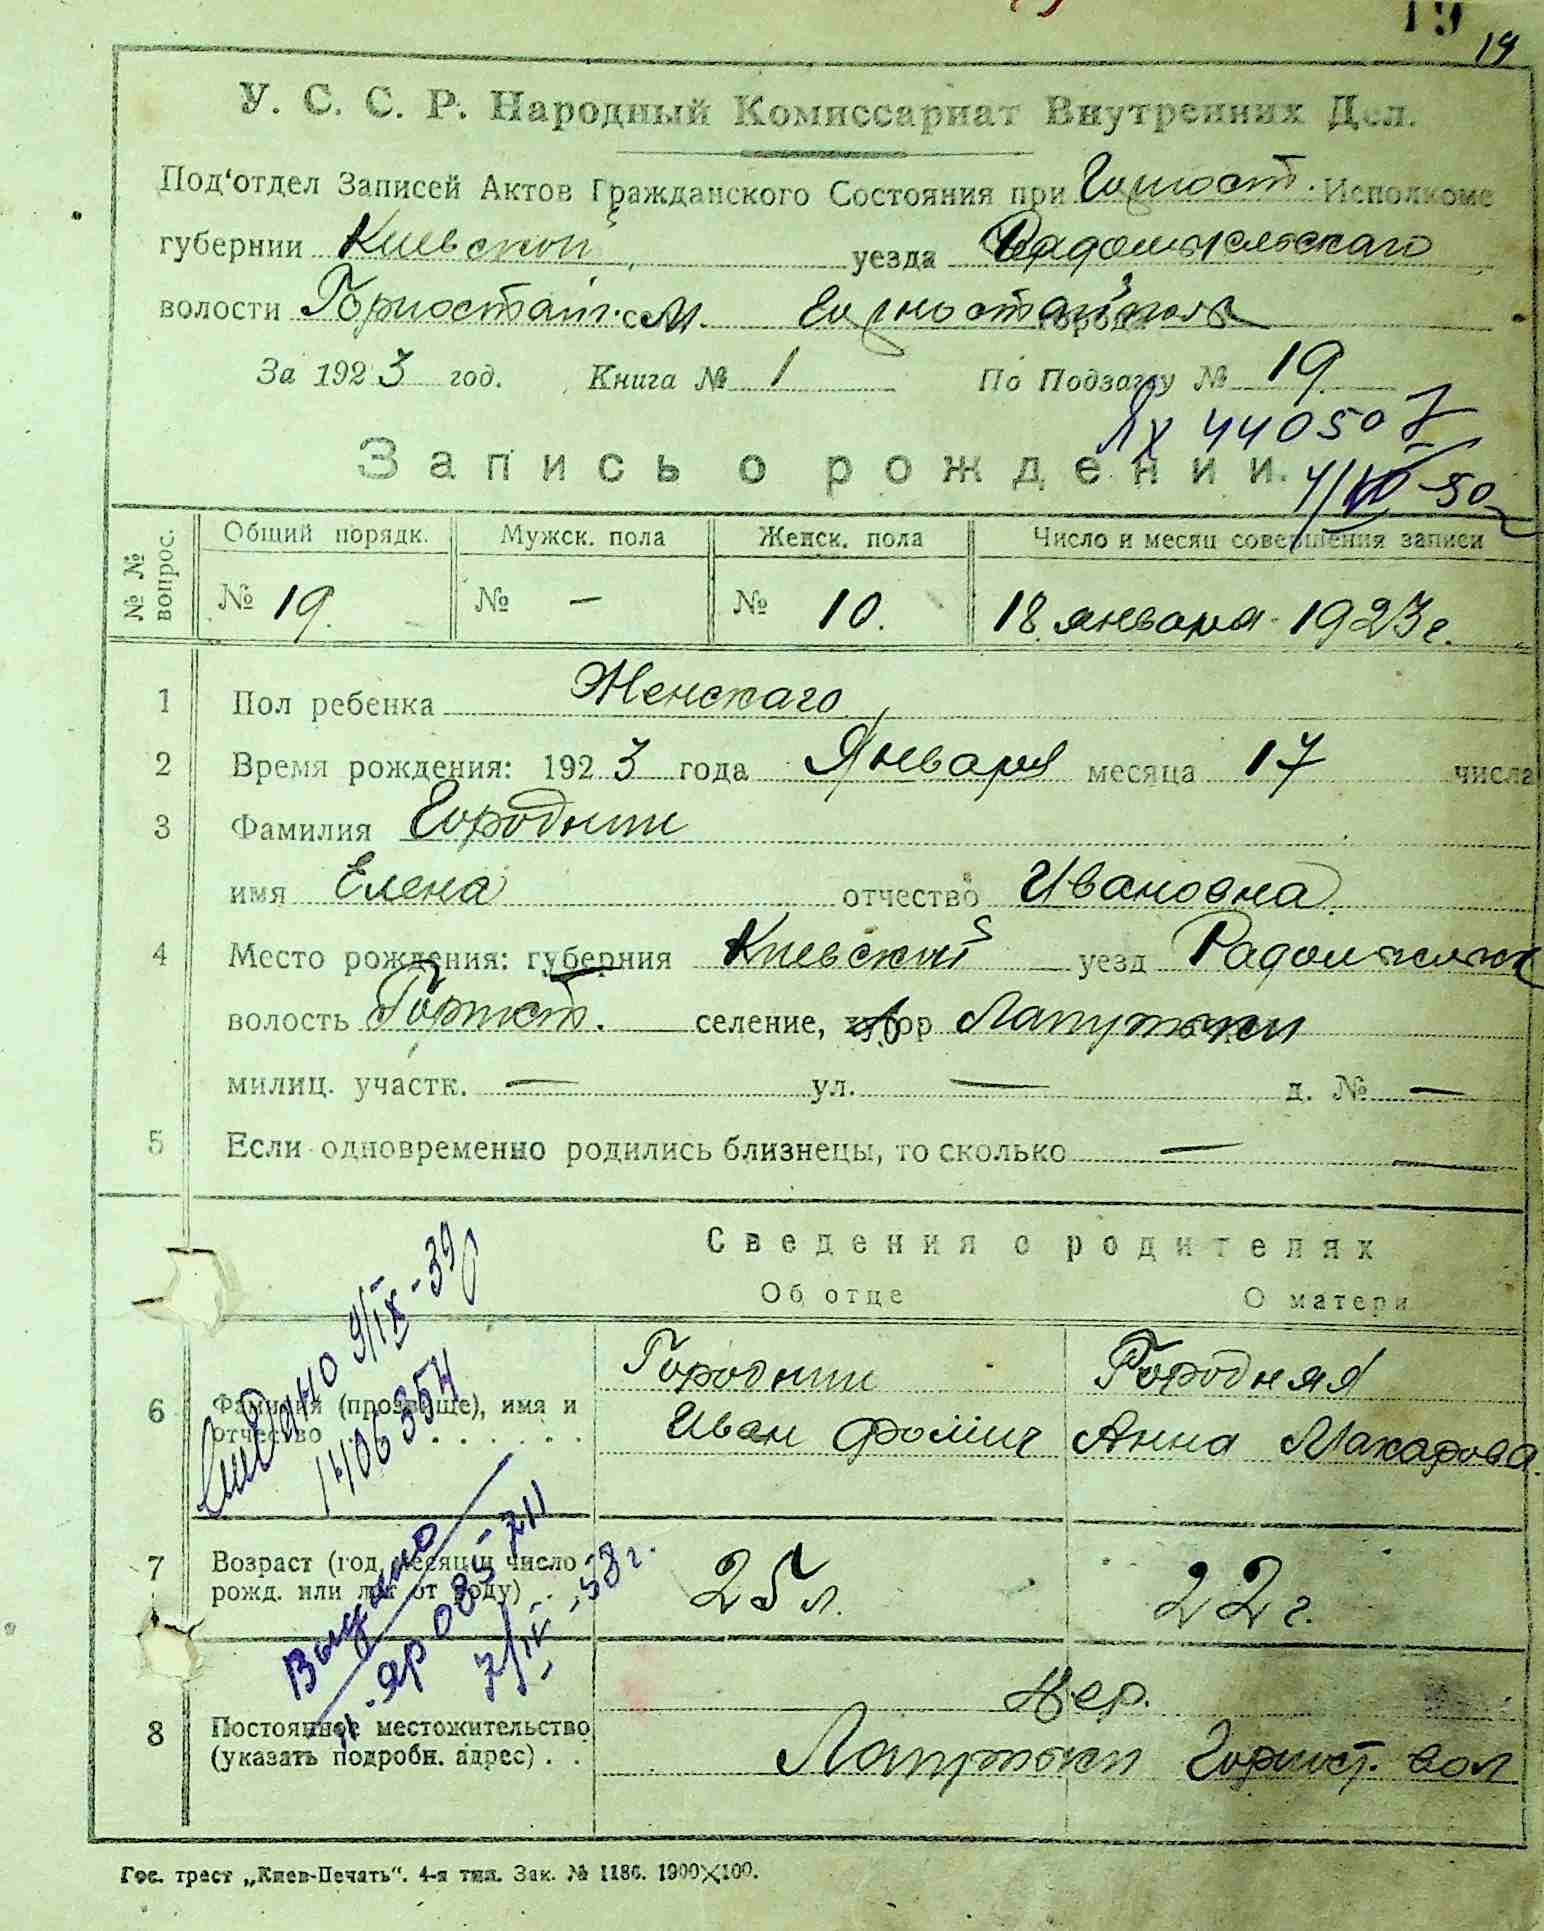 19
19
У. С. С. Р. Народный Комиссариат Внутренних Дел.
Под'отдел Записей Актов Гражданского Состояния при Горност. Исполкоме
губернии Киевской уезда Радомысльскаго
волости Горностайп. с. м. Горностайполь
За 1923 год. Книга № 1 По Подзагу № 19
ЯХ 440507
Запись о рождении.
№ № вопрос. Общий порядк. Мужск. пола Женск. пола Число и месяц совершения записи
№ 19. № — № 10. 18 января 1923 г.
1 Пол ребенка Женскаго
2 Время рождения: 1923 года Января месяца 17 числа
3 Фамилия Городнии
имя Елена отчество Ивановна
4 Место рождения: губерния Киевский уезд Радомысльск
волость Горност. селение, Лапутьки
милиц. участк. — ул. — д. № —
5 Если одновременно родились близнецы, то сколько —
Сведения о родителях
Об отце О матери
6 Фамилия (прозвище), имя и отчество Городнии Городняя
Иван Фомич Анна Макарова
9/IX-39
1406354
7 Возраст (год, месяц и число рожд. или лет от роду) 25 л. 22 г.
Выдано
ЯР 085-711
7/IV-58 г.
8 Постоянное местожительство (указать подробн. адрес)
Лапутьки Горност. вол
Гос. трест „Киев-Печать“. 4-я тип. Зак. № 1186. 1900×100.